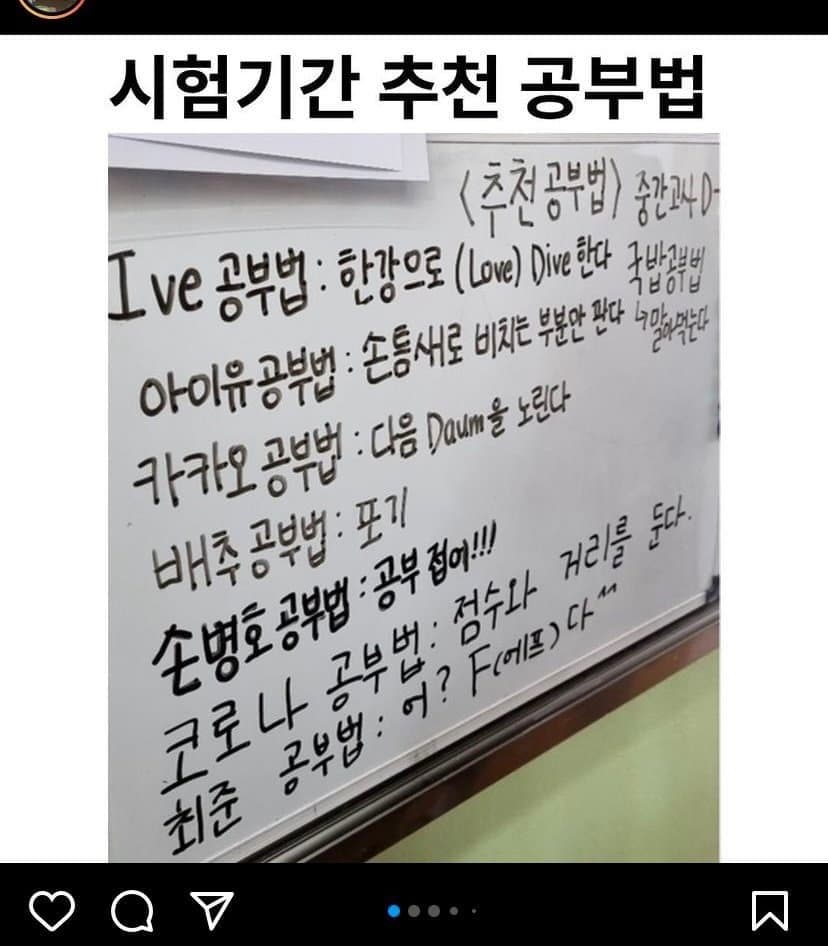 시험기간 추천 공부법
<추천공부법> 중간고사 D-
Ive 공부법 : 한강으로 (Love) Dive 한다
국밥공부법
↳말아먹는다
아이유공부법 : 손틈새로 비치는 부분만 판다
카카오공부법 : 다음 Daum을 노린다
배추공부법 : 포기
손병호공부법 : 공부 접어!!!
코로나 공부법 : 점수와 거리를 둔다.
최준 공부법 : 어? F(에프)다^^